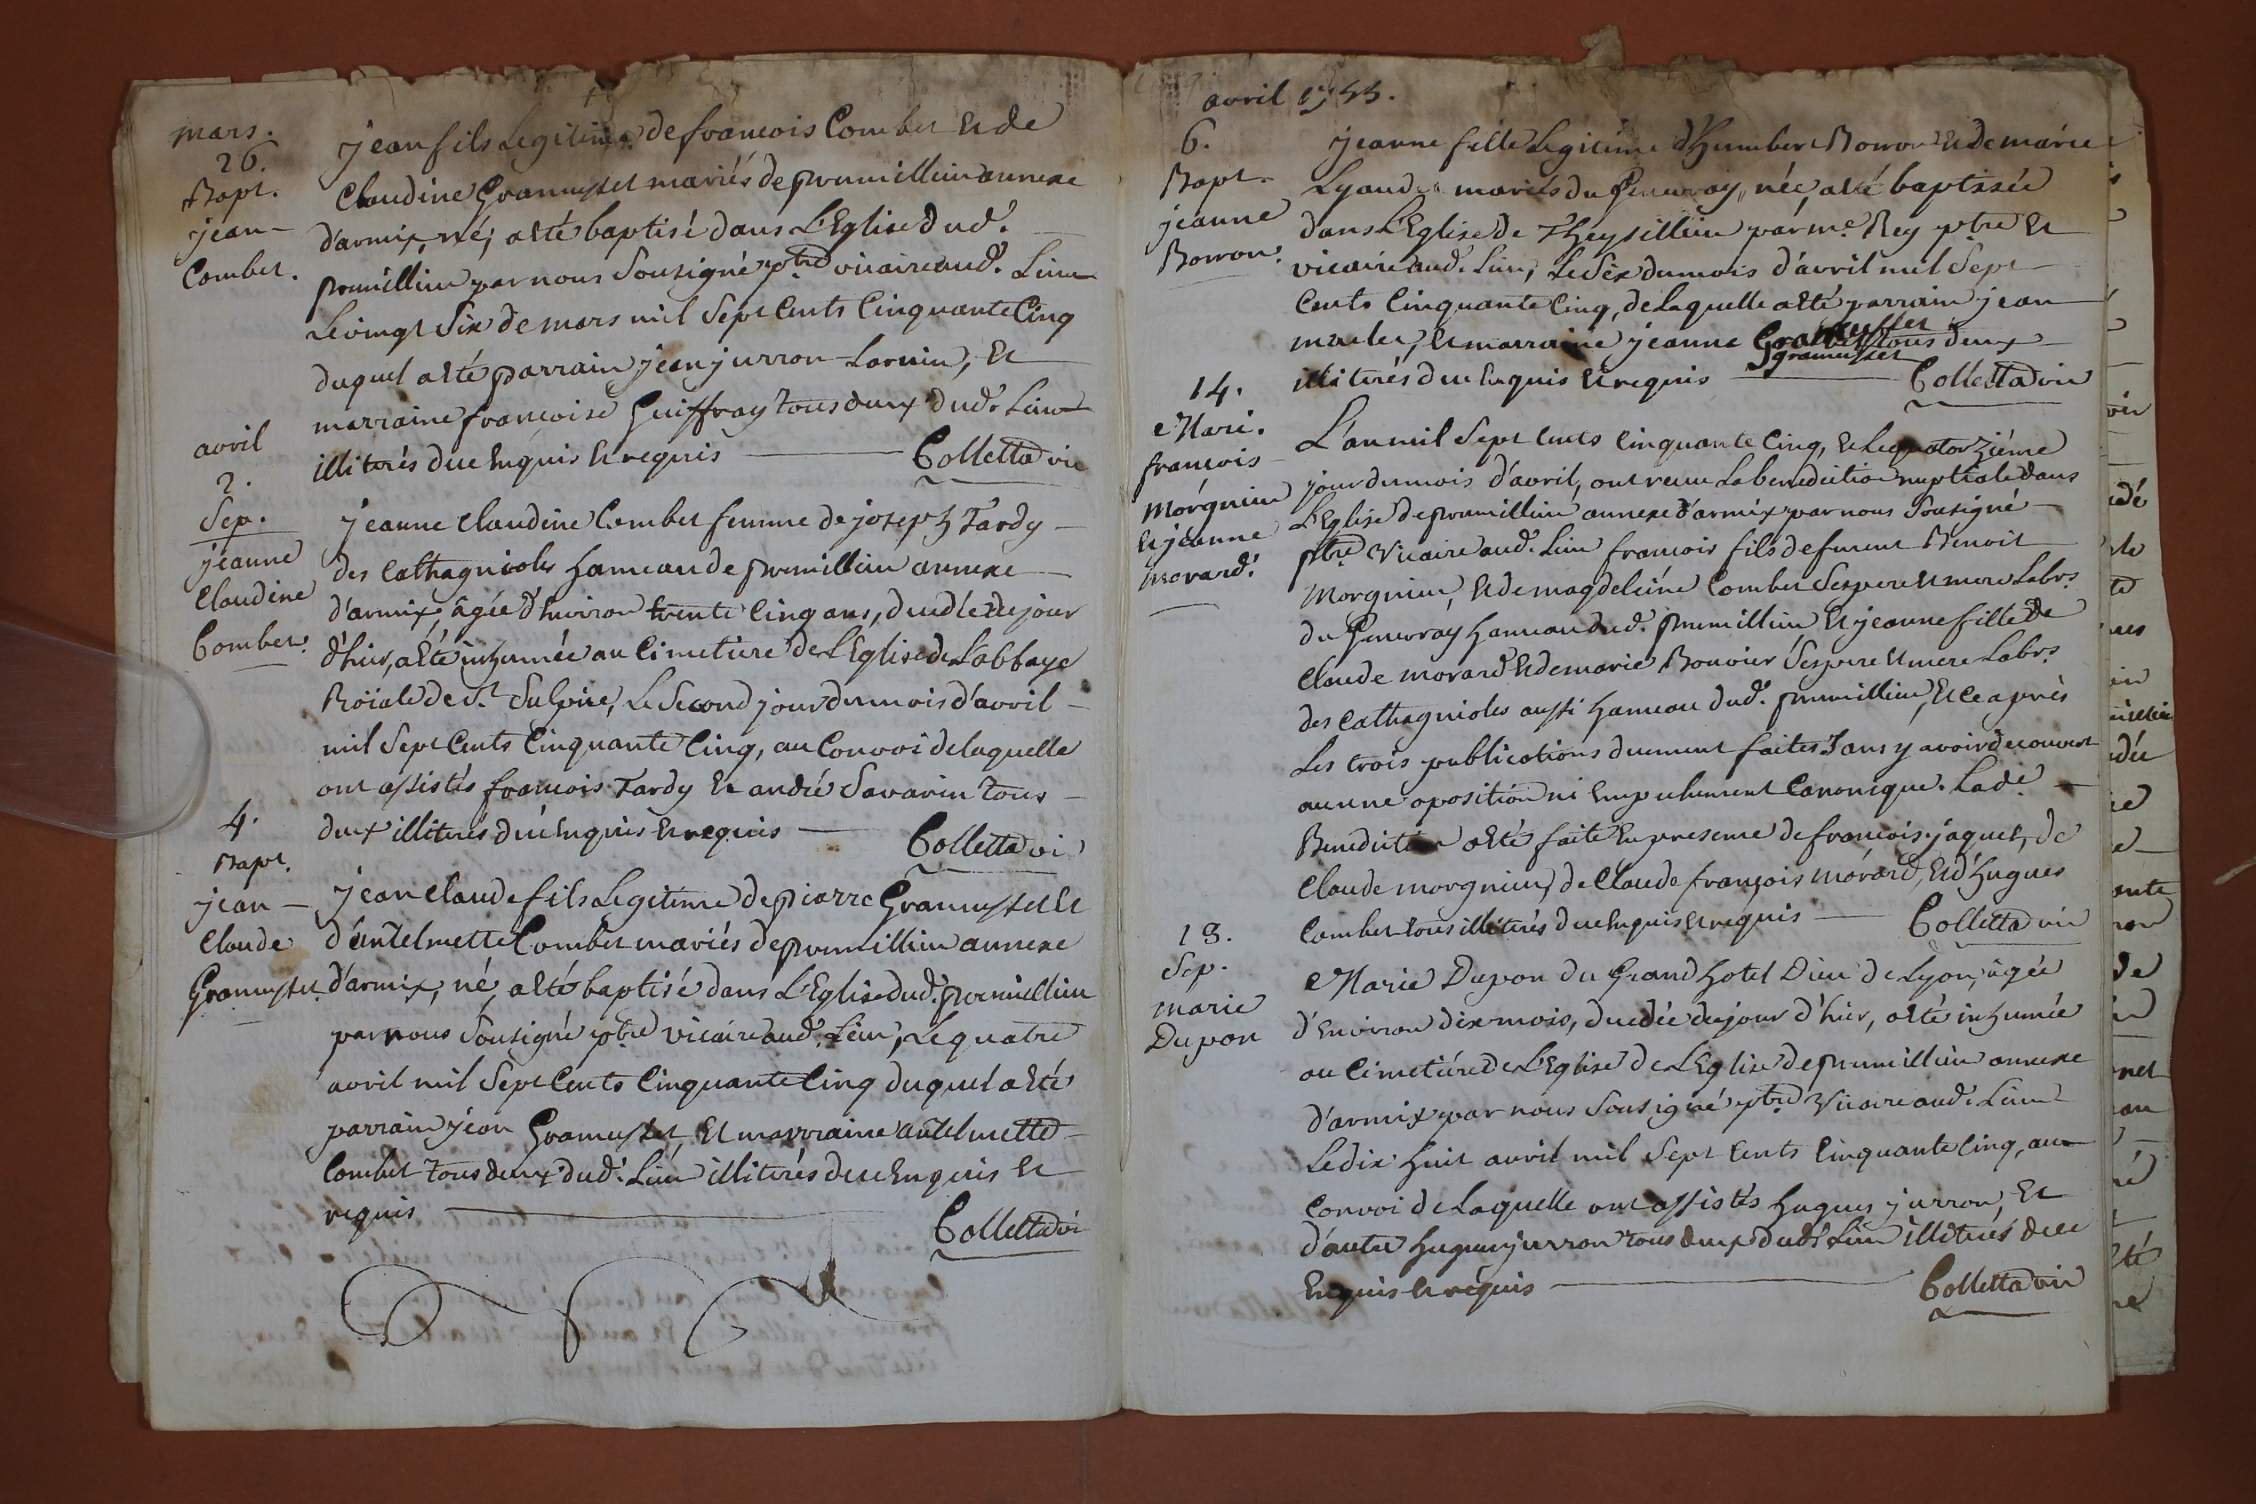 mars.
26.
Bapt.
jean
Combet.
jean fils Legitime de francois Combet et de
Claudine Gramusset mariés de premillieu annexe
d'armix, né, a eté baptisé dans L'Eglise dud.
premillieu par nous Sousigné ptre vicaire aud. Lieu
Le vingt Six de mars mil Sept Cents Cinquante Cinq
duquel a eté parrain jean jurron Lornin, et
marraine francoise Guiffray tous deux dud. Lieu
illiterés due enquis et requis Colletta vic
avril
2.
Sep.
jeanne
Claudine
Combet
jeanne Claudine Combet femme de joseph Tardy
des Cathagnioles hameau de premillieu annexe
d'armix, âgée d'environ trente Cinq ans, decedée du jour
d'hier, a eté inhumée au Cimetiere de L'Eglise de L'abbaye
Roïale de St. Sulpice, Le Second jour du mois d'avril
mil Sept Cents Cinquante Cinq, au Convoi de laquelle
ont assistés francois Tardy et andré Savarin tous
deux illiterés due enquis et requis Colletta vi
4.
Bapt.
jean
Claude
Gramusset.
jean Claude fils Legitime de pierre Gramusset et
d'antelmette Combet mariés de premillieu annexe
d'armix, né, a eté baptisé dans L'Eglise dud. premillieu
par nous Sousigné ptre vicaire aud. Lieu, Le quatre
avril mil Sept Cents Cinquante Cinq duquel a eté
parrain jean Gramusset, et marraine antelmette
Combet tous deux dud. Lieu illiterés due enquis et
requis Colletta vi
avril 1755.
6.
Bapt.
jeanne
Borron.
jeanne fille Legitime d'Humbert Borron et de marie
mariés du Genevray, née, a eté baptisée
dans L'Eglise de Theysillieu par me. Rey ptre et
vicaire aud. Lieu, Le Six du mois d'avril mil Sept
Cents Cinquante Cinq, de Laquelle a eté parrain jean
et marraine jeanne gramusset tous deux
illiterés due enquis et requis Colletta vic
14.
Mari.
francois
Morgnieu
et jeanne
Morard.
L'an mil Sept Cents Cinquante Cinq, et Le quatorziéme
jour du mois d'avril, ont receu La benediction nuptiale dans
L'Eglise de premillieu annexe d'armix par nous Sousigné
ptre Vicaire aud. Lieu francois fils de feu Benoit
Morgnieu, et de magdeleine Combet Ses pere et mere Labrs.
du Genevray hameau dud. premillieu et jeanne fille de
Claude morard et de marie Bouvier Ses pere et mere Labrs.
des Cathagnioles aussi hameau dud. premillieu, et ce après
Les trois publications duement faites Sans y avoir decouvert
aucune oposition ni empechement Canonique. Lad.
Benediction a eté faite en presence de francois jaquet, de
Claude morgnieu, de Claude françois morard, et d'hugues
Combet tous illiterés due enquis et requis Colletta vic
18.
Sep.
marie
Dupon
Marie Dupon du Grand hotel Dieu de Lyon, âgée
d'environ dix mois, decedée du jour d'hier, a eté inhumée
au Cimetiére de L'Eglise de L'Eglise de premillieu annexe
d'armix par nous Sousigné ptre Vicaire aud. Lieu
Le dix huit avril mil Sept Cents Cinquante Cinq, au
Convoi de Laquelle ont assistés hugues jurron, et
d'autre hugues jurron tous deux dud. Lieu illiterés due
enquis et requis Colletta vic